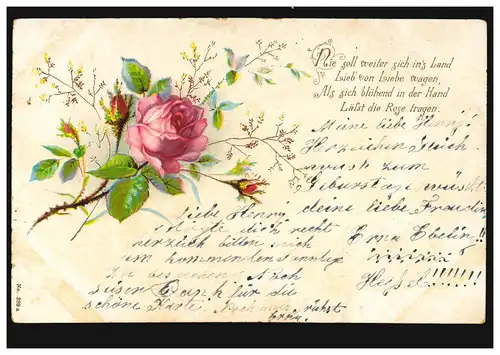 Nie soll weiter sich in's Land
Lieb von Liebe wagen,
Als sich blühend in der Hand
Läßt die Rose tragen.
Meine liebe Henny!
Herzlichen Glück-
wunsch zum
Geburtstag, wünscht
deine liebe Freundin
Erna Ebeling!!!
Liebe Henny!
dich recht
herzlich bitten mich
im kommenden Sonntag
Zu besuchen
Dank für die
schöne Karte.
Erna.
No. 389a